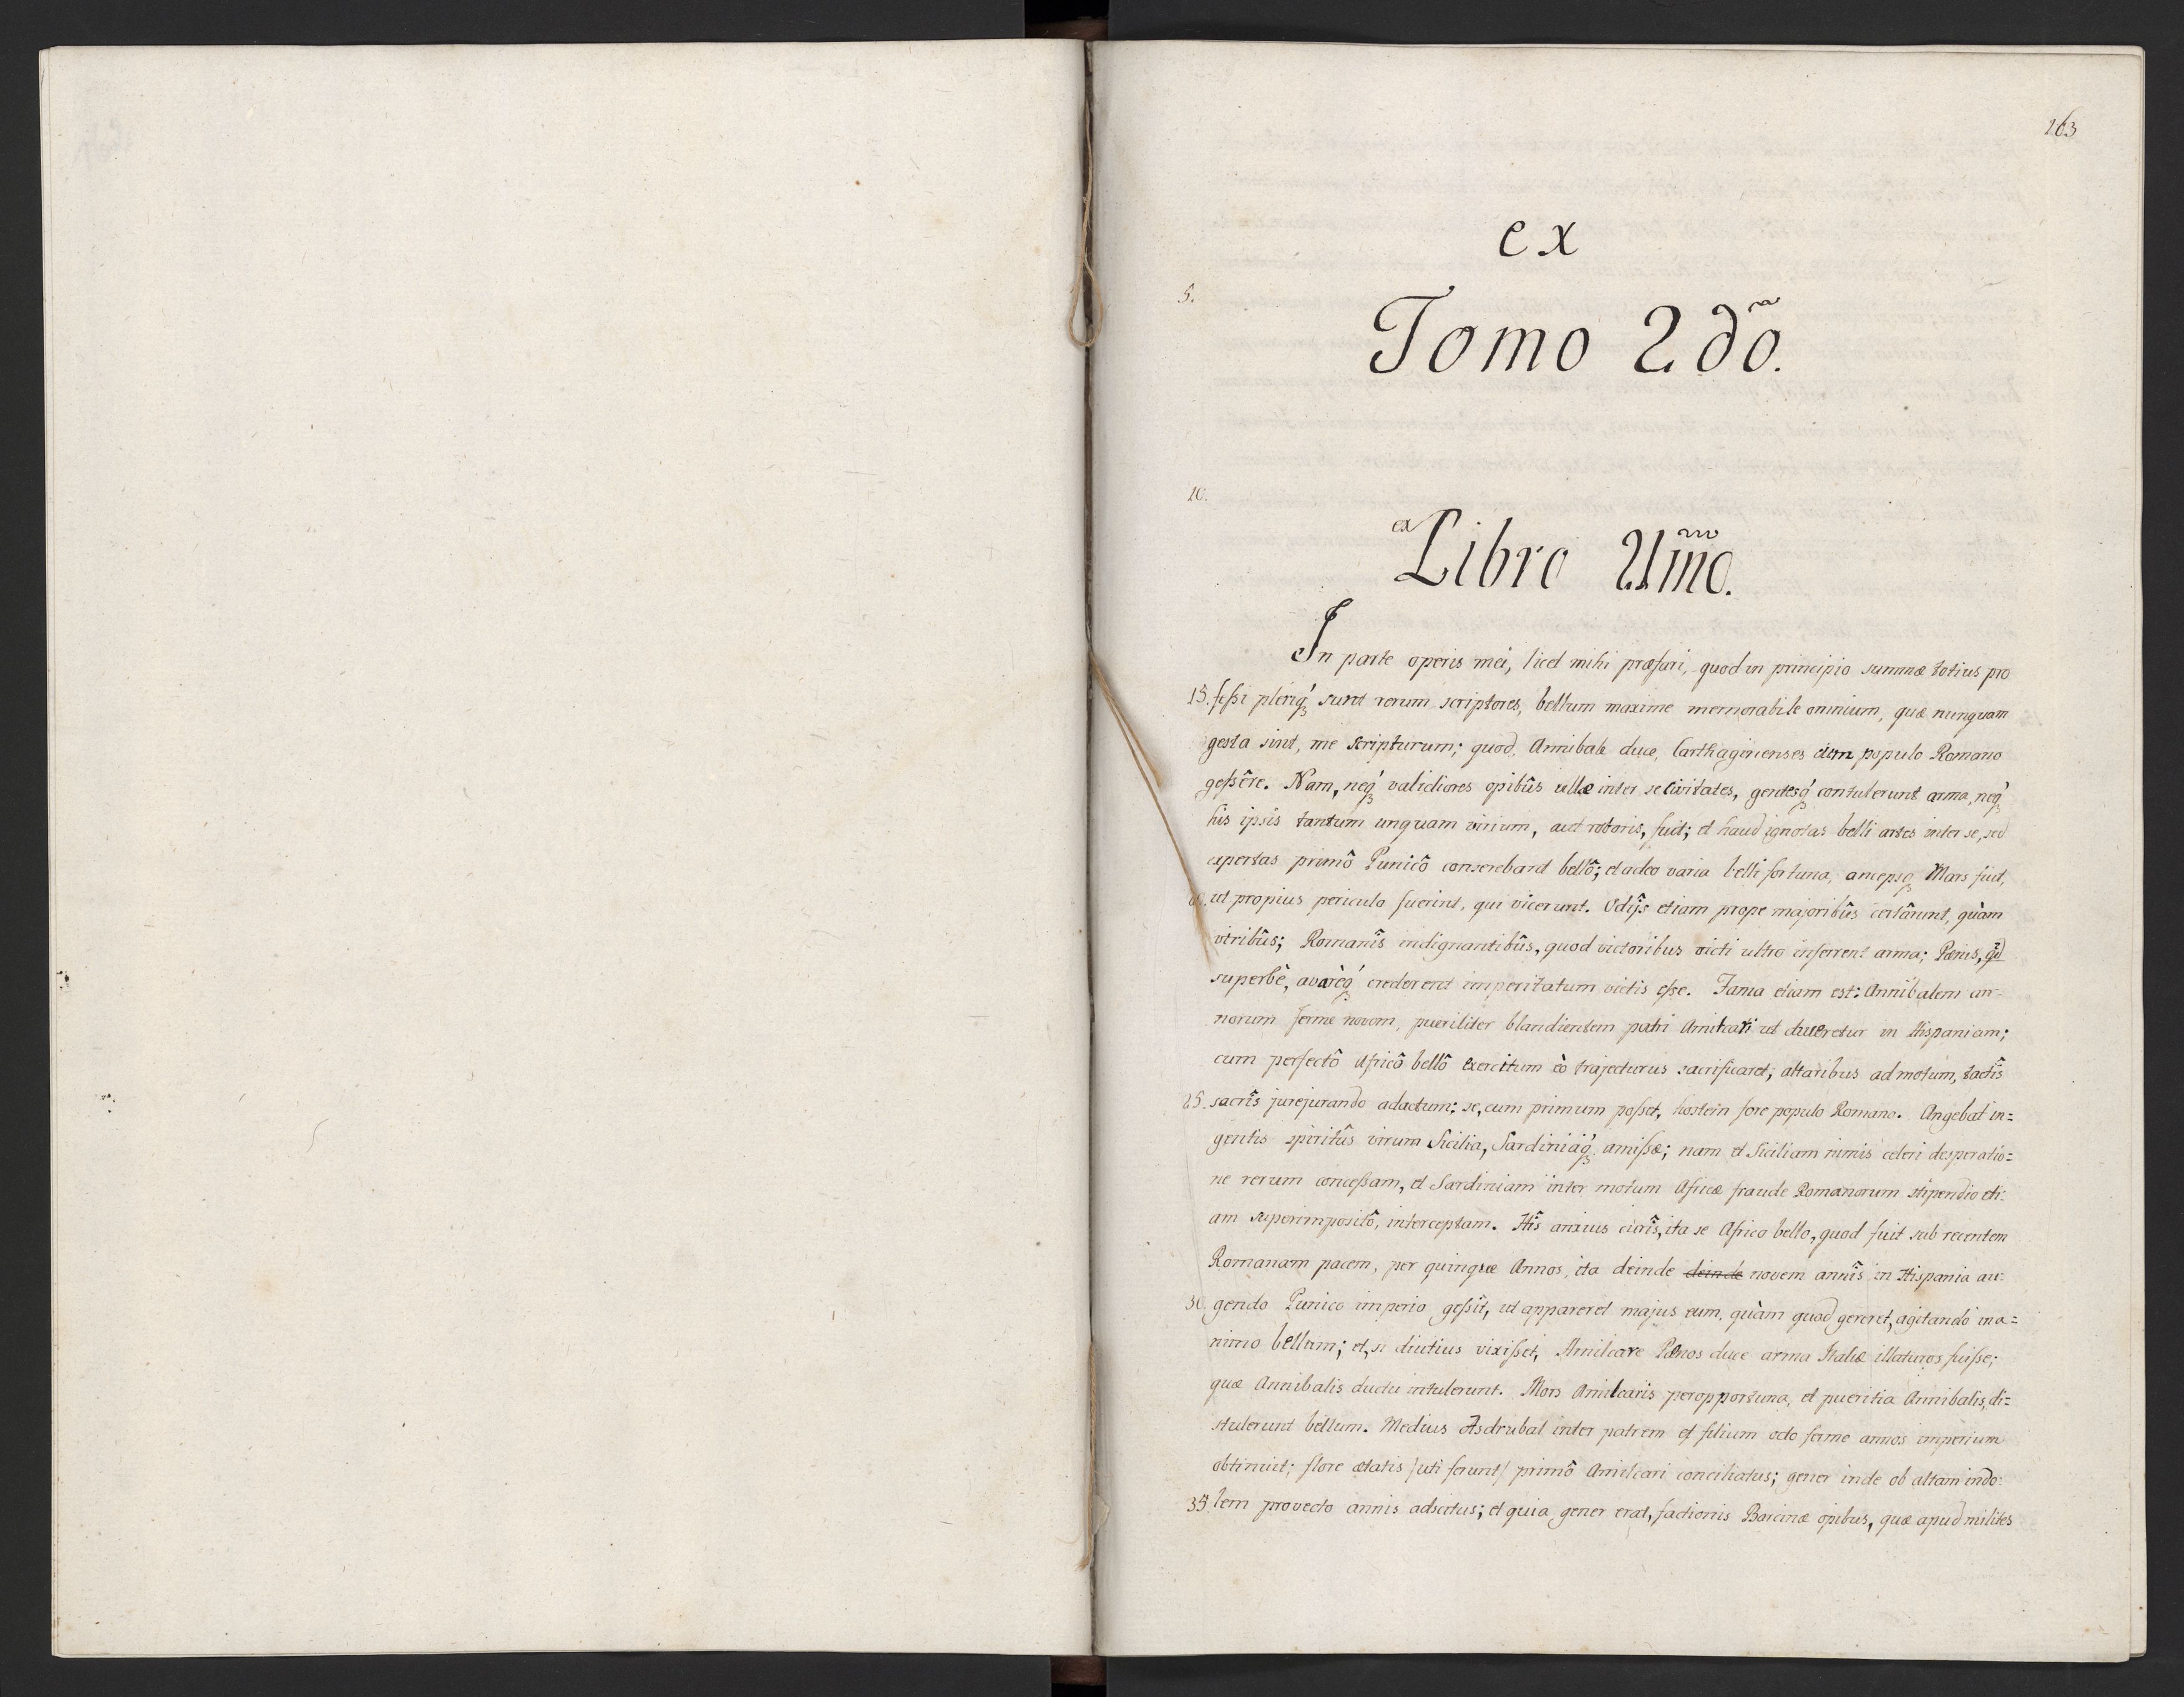 163
ex
5.
Tomo 2dõ.
10.
ex Libro Um̃o.
In parte operis mei, licet mihi præfari, quod in principio summæ totius pro
15. feßi pleriq́ꝫ sunt rerum scriptores, bellum maxime memorabile omnium, quæ nunquam
gesta sint, me scripturum; quod, Annibale duce, Carthaginenses cum populo Romano
geßêre. Nam, neq́ꝫ validiores opibûs ullæ inter se Civitates, gentesq́ꝫ contulerunt arma, neq́ꝫ
his ipsis tantum unquam virium, aut roboris, fuit; et haud ignotas belli artes inter se, sed
expertas primô Punicô conserebant bellô; et adeo varia belli fortuna, ancepsqꝫ Mars fuit,
20. ut propius periculo fuerint, qui vicerunt. Odijs etiam prope majoribûs certârunt, quàm
viribûs; Romanîs indignantibûs, quod victoribus victi ultro inferrent arma; Pœnis, qd̃
superbè, avarèq́ꝫ crederent imperitatum victis eße. Fama etiam est: Annibalem an-
norum ferme novem, pueriliter blandientem patri Amilcari ut duceretur in Hispaniam;
cum perfectô Africô bellô Exercitum eò trajecturus sacrificaret; altaribus admotum, tactîs
25. sacrîs jurejurando adactum; se, cum primum poßet, hostem fore populo Romano. Angebat in=
gentis spiritûs virum Sicilia, Sardiniaq́ꝫ amißæ; nam et Siciliam nimis celeri desperatio=
ne rerum conceßam, et Sardiniam inter motum Africæ fraude Romanorum stipendio eti=
am superimpositô, interceptam. Hîs anxius curîs, ita se Africo bello, quod fuit sub recentem
Romanam pacem, per quinque Annos, ita deinde deinde novem annîs in Hispania au=
30. gendo Punico imperio geßit, ut appareret majus eum, quàm quod gereret, agitando in a=
nimo bellum; et, si diutius vixißet, Amilcare Pœnos duce arma Italiæ illaturos fuiße;
quæ Annibalis ductu intulerunt. Mors Amilcaris peropportuna, et pueritia Annibalis, di=
stulerunt bellum. Medius Asdrubal inter patrem et filium octo ferme annos imperium
obtinuit; flore ætatis /uti ferunt/ primô Amilcari conciliatus; gener inde ob altam indo-
35. lem provecto annis adscitus; et quia gener erat, factionis Barcinæ opibus, quæ apud milites